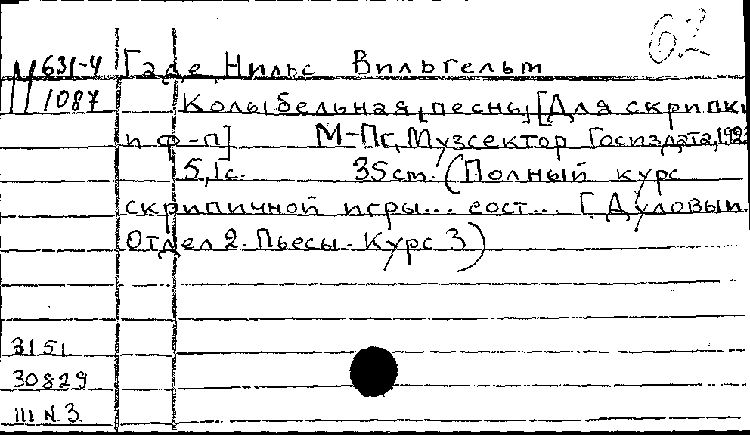 62
М 631-4 Гаде, Нильс Вильгельм
1087 Колыбельная песнь, [Для скрипки
и ф-п] М-Пг, Музсектор Госиздата, 1923
5, 1с. 35cm. (Полный курс
скрипичной игры... сост... Г. Дуловым.
Отдел 2. Пьесы. Курс 3)
3151
30829
III N 3